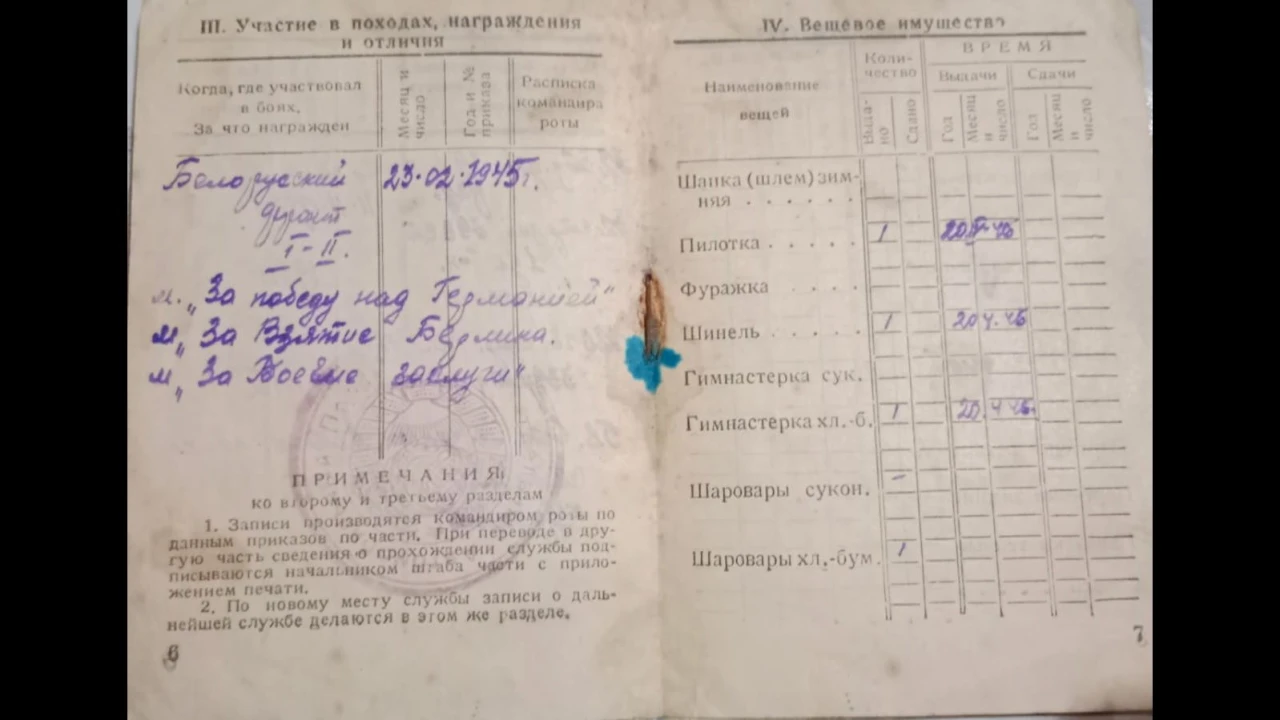 III. Участие в походах, награждения
и отличия
Когда, где участвовал
в боях,
За что награжден
Месяц и
число
Год и №
приказа
Расписка
командира
роты
Белорусский 23.02.1945г.
фронт
I-II.
м. „За победу над Германией"
м„ За Взятие Берлина.
м„ За Боевые заслуги"
ПРИМЕЧАНИЯ
ко второму и третьему разделам
1. Записи производятся командиром роты по
данным приказов по части. При переводе в дру-
гую часть сведения о прохождении службы под-
писываются начальником штаба части с прило-
жением печати.
2. По новому месту службы записи о даль-
нейшей службе делаются в этом же разделе.
6
IV. Вещевое имущество
Наименование
вещей
Коли-
чество
ВРЕМЯ
Выдачи
Сдачи
Выда-
но
Сдано
Год
Месяц
и
число
Год
Месяц
и
число
Шапка (шлем) зим-
няя . . . . . .
Пилотка . . . . . 1
Фуражка . . . .
Шинель . . . . . 1 20 4.46
Гимнастерка сук.
Гимнастерка хл.-б. 1 20.4 46.
Шаровары сукон. –
Шаровары хл.-бум. 1
7